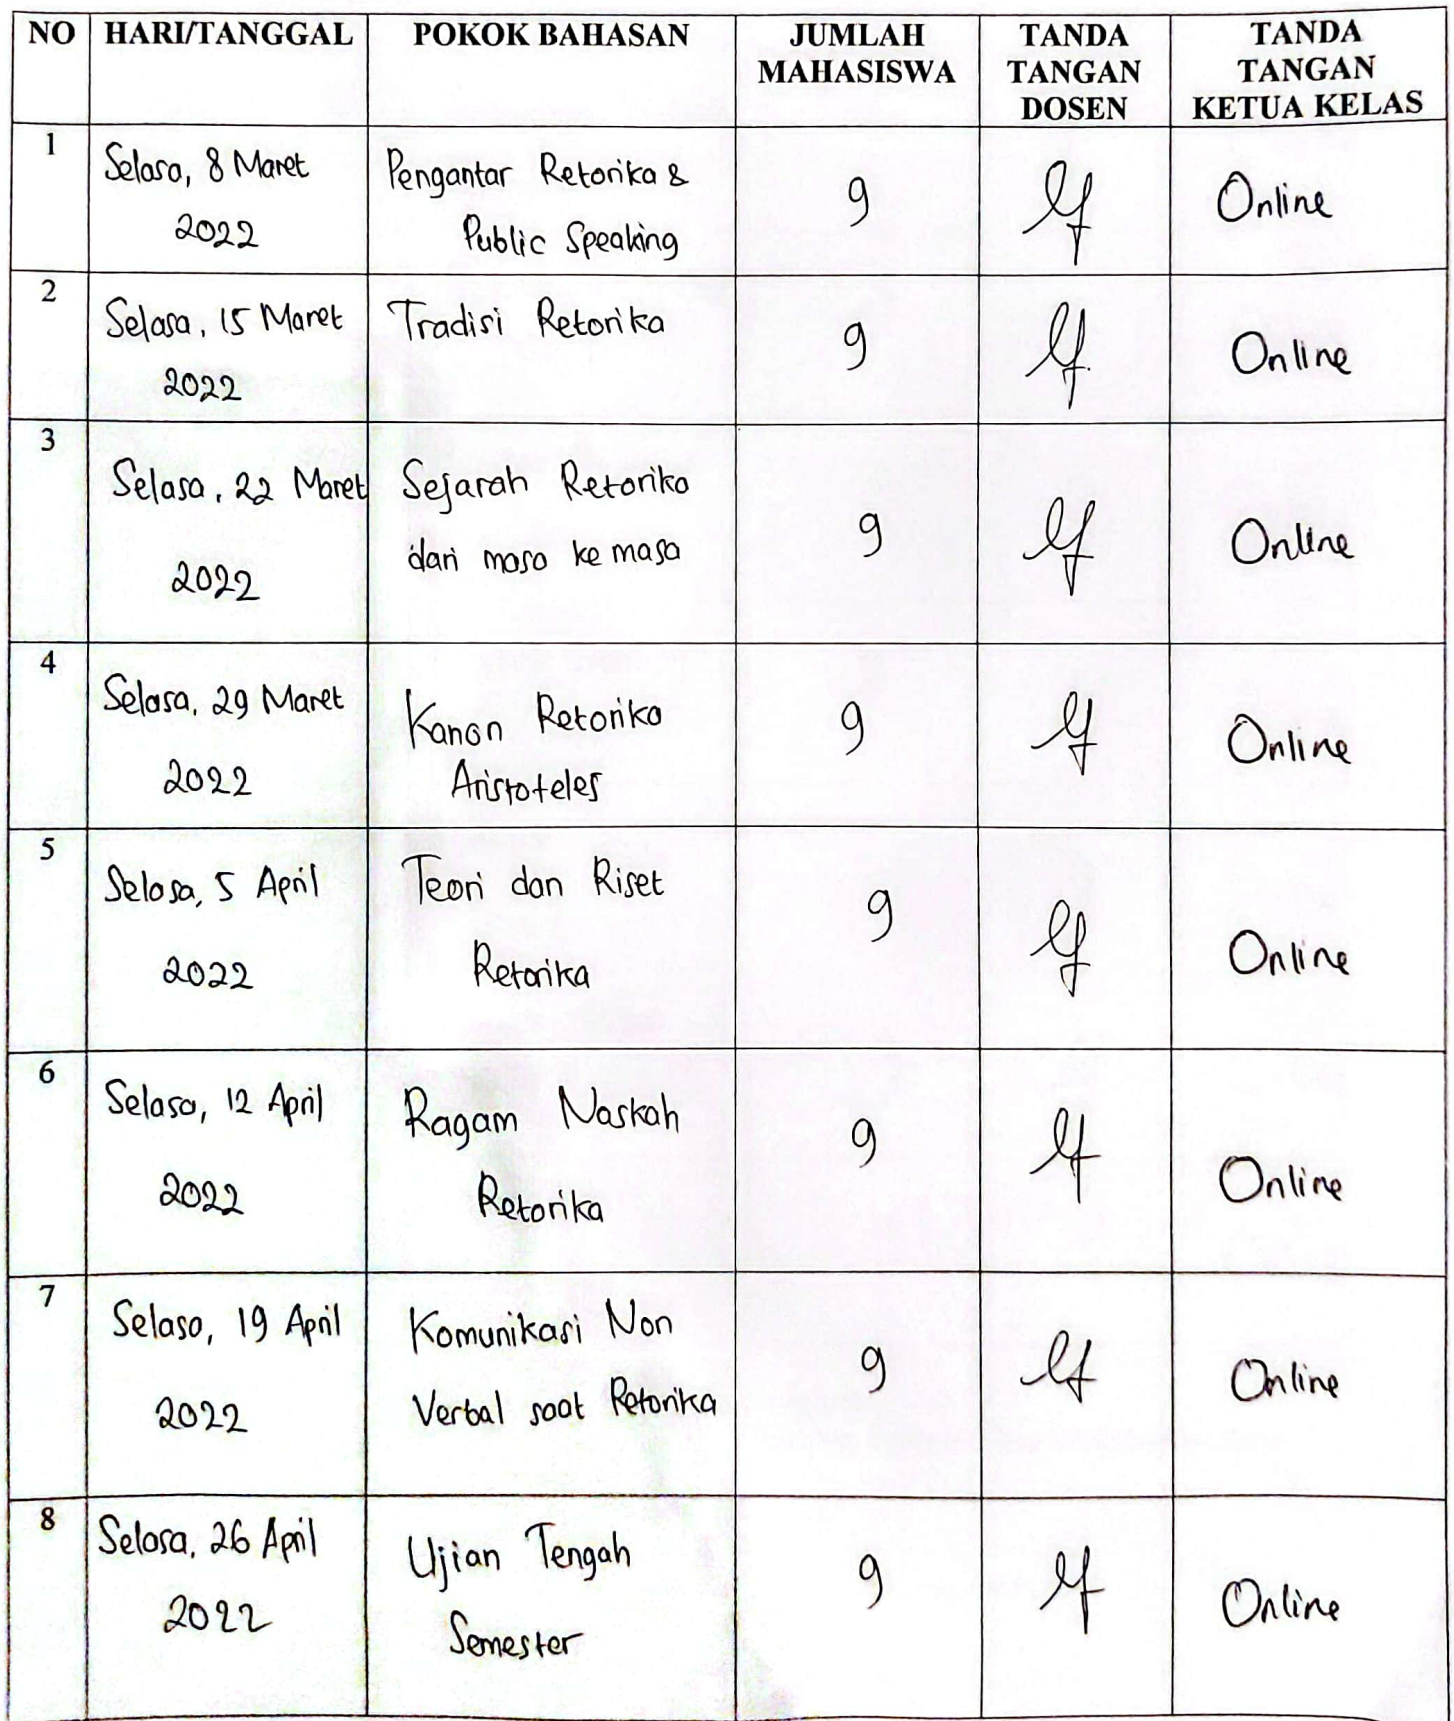 NO HARI/TANGGAL POKOK BAHASAN JUMLAH MAHASISWA TANDA TANGAN DOSEN TANDA TANGAN KETUA KELAS
1 Selasa, 8 Maret 2022 Pengantar Retorika & Public Speaking 9 Online
2 Selasa, 15 Maret 2022 Tradisi Retorika 9 Online
3 Selasa, 22 Maret 2022 Sejarah Retorika dari masa ke masa 9 Online
4 Selasa, 29 Maret 2022 Kanon Retorika Aristoteles 9 Online
5 Selasa, 5 April 2022 Teori dan Riset Retorika 9 Online
6 Selasa, 12 April 2022 Ragam Naskah Retorika 9 Online
7 Selasa, 19 April 2022 Komunikasi Non Verbal saat Retorika 9 Online
8 Selasa, 26 April 2022 Ujian Tengah Semester 9 Online